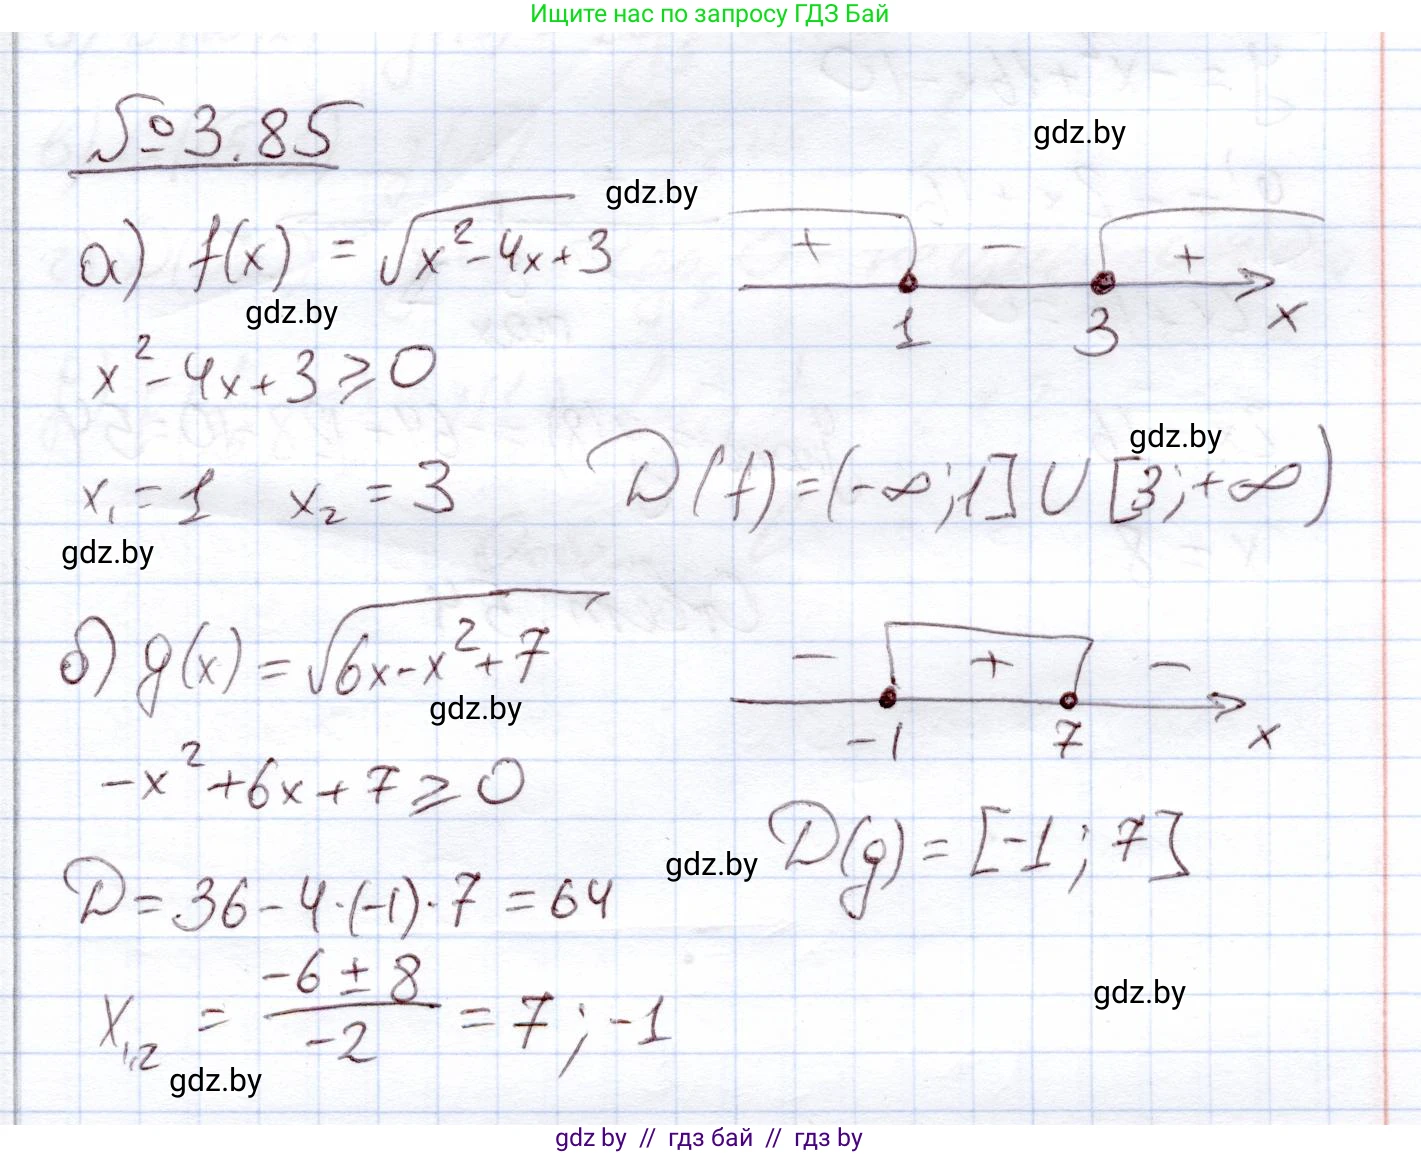 Ищите нас по запросу ГДЗ Бай
№3.85
gdz.by
gdz.by
а) f(x) = √(x²-4x+3)
+ - +
1 3 x
gdz.by
x²-4x+3 ⩾ 0
gdz.by
x₁ = 1 x₂ = 3
D(f) = (-∞; 1] ∪ [3; +∞)
gdz.by
б) g(x) = √(6x-x²+7)
- + -
-1 7 x
gdz.by
-x²+6x+7 ⩾ 0
D(g) = [-1; 7]
gdz.by
D = 36-4·(-1)·7 = 64
x₁,₂ = (-6 ± 8)/(-2) = 7; -1
gdz.by
gdz.by
gdz by // гдз бай // гдз by